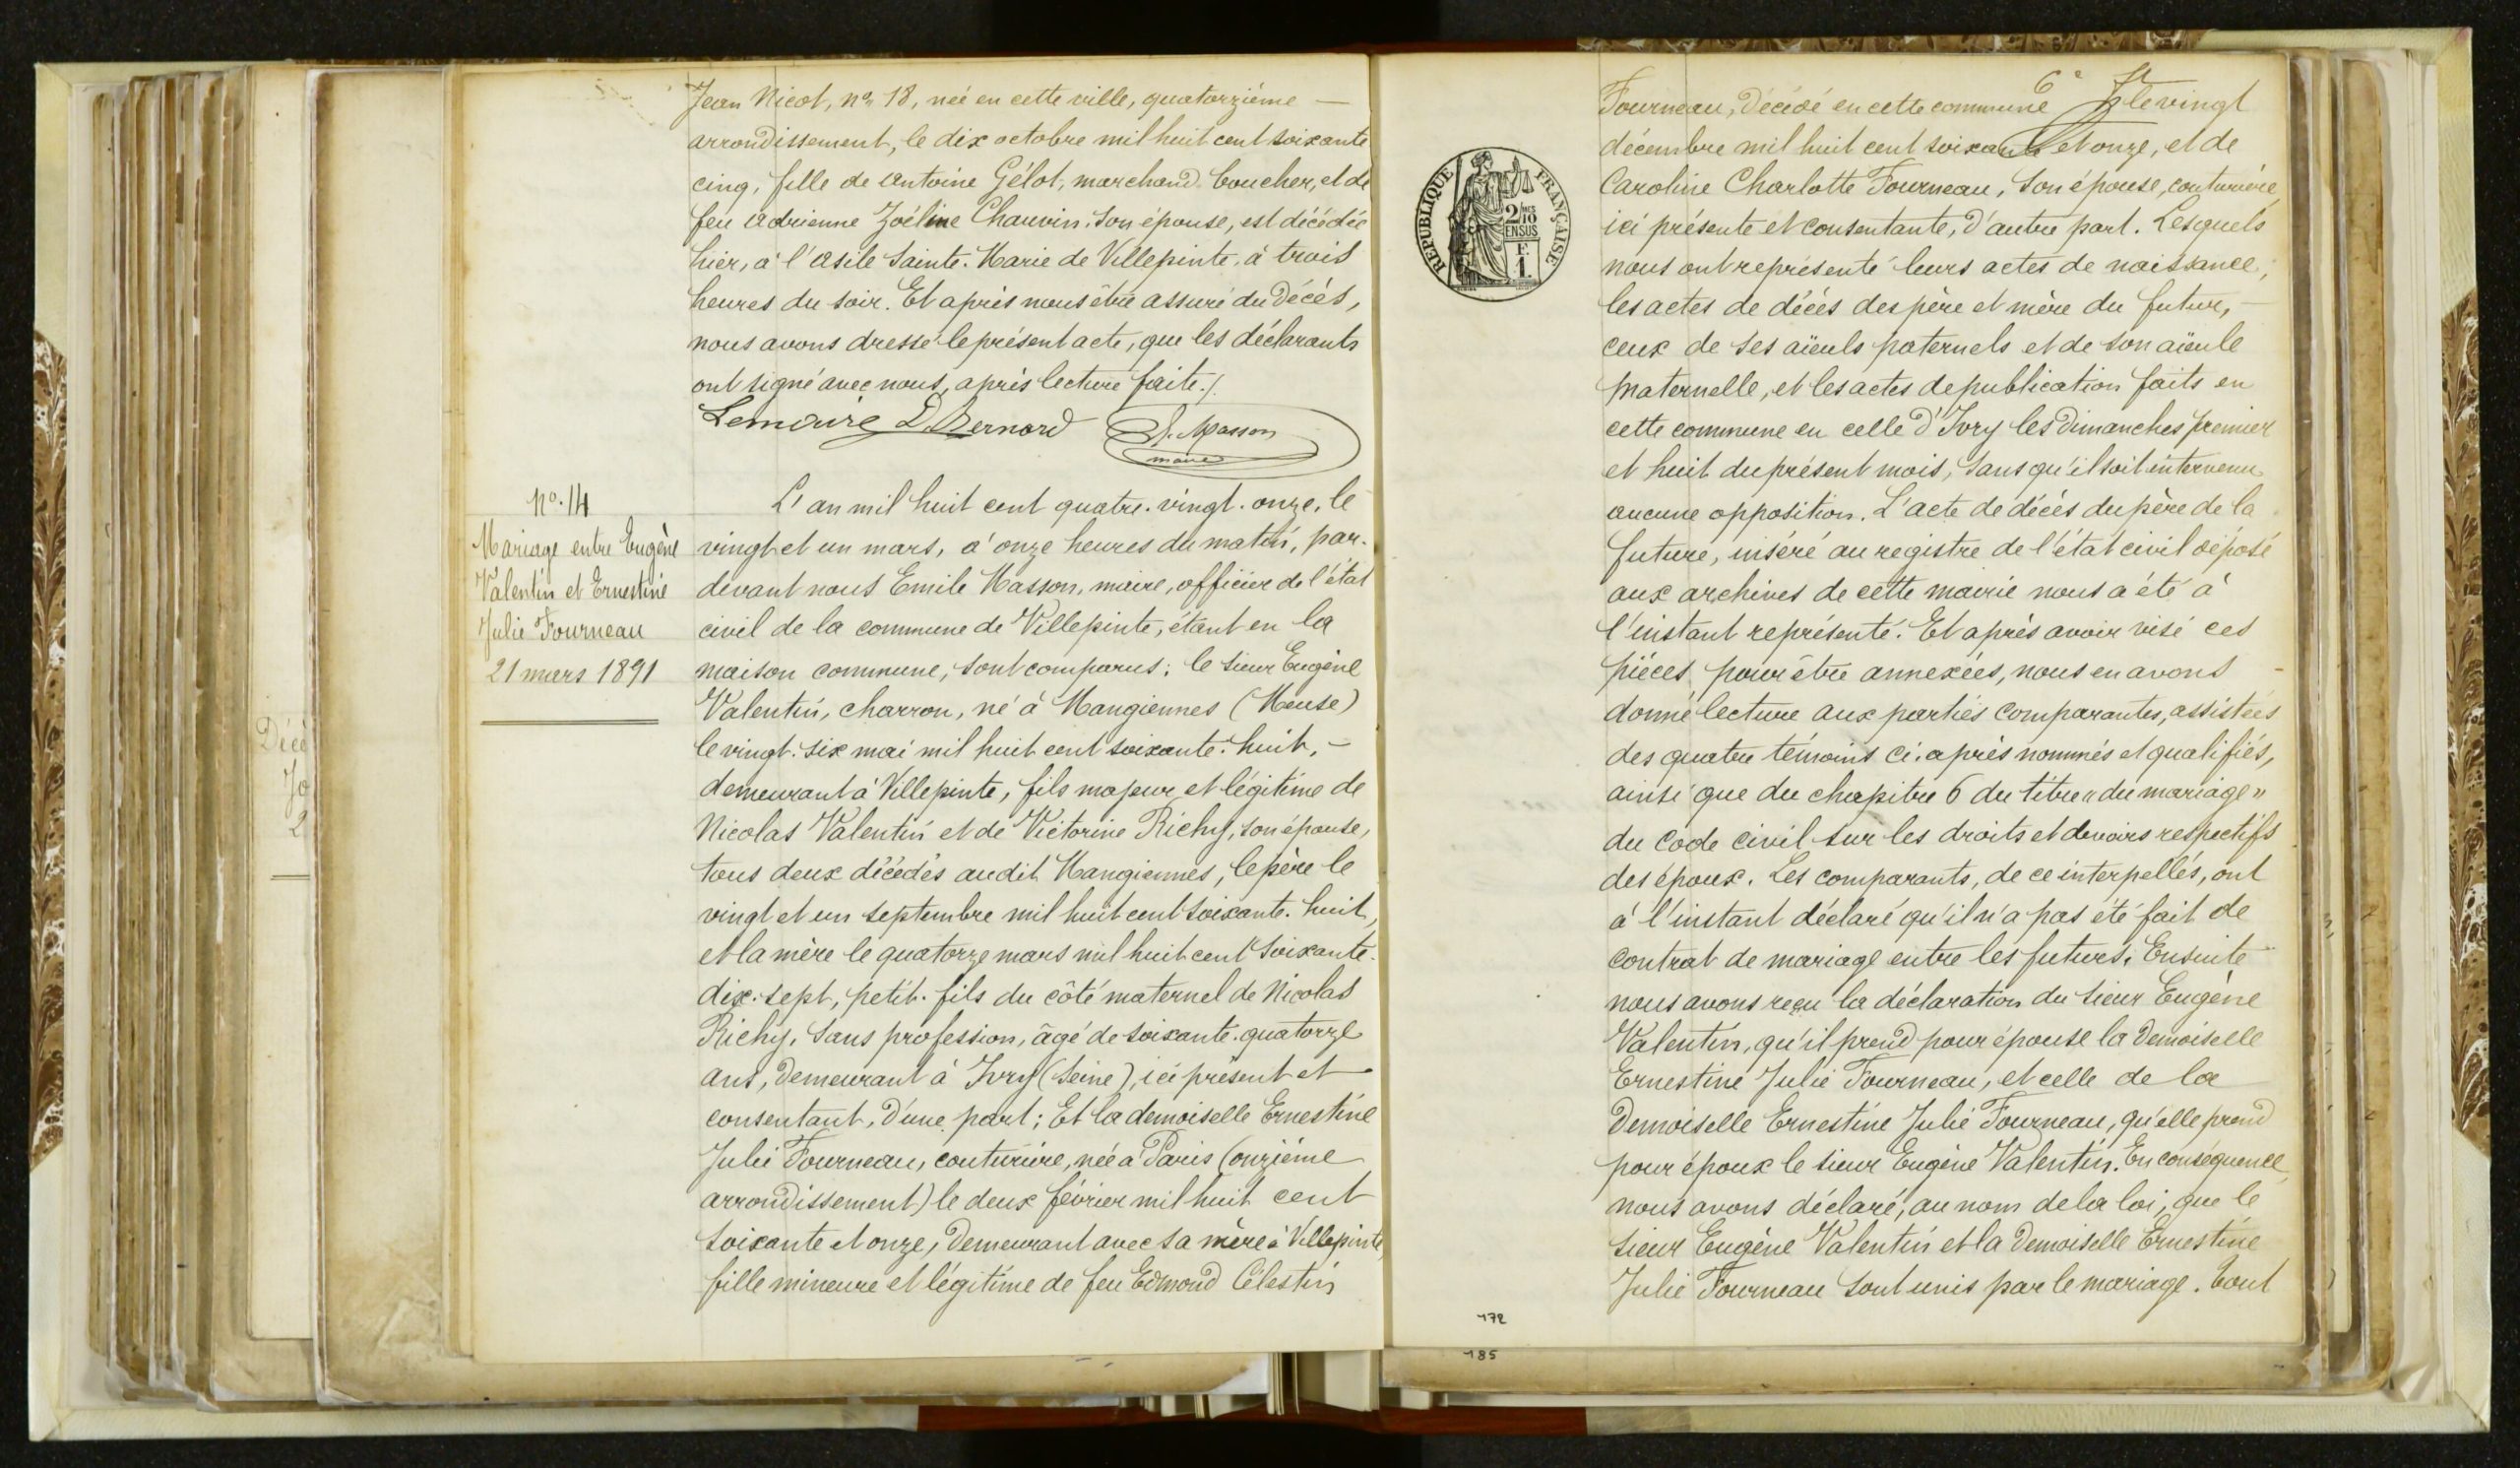 Jean Nicot, no 18, née en cette ville, quatorzième —
arrondissement, le dix octobre mil huit cent soixante
cinq, fille de Antoine Gélot, marchand boucher, et de
feu Adrienne Zoéline Chauvin, son épouse, est décédée
hier, à l'Asile Sainte-Marie de Villepinte, à trois
heures du soir. Et après nous être assuré du décès,
nous avons dressé le présent acte, que les déclarants
ont signé avec nous, après lecture faite./.
Lemaire L. Bernard E. Masson
maire
No. 14
Mariage entre Eugène
Valentin et Ernestine
Julie Fourneau
21 mars 1891
L'an mil huit cent quatre-vingt-onze, le
vingt et un mars, à onze heures du matin, par-
devant nous Emile Masson, maire, officier de l'état
civil de la commune de Villepinte, étant en la
maison commune, sont comparus: le sieur Eugène
Valentin, charron, né à Mangiennes (Meuse)
le vingt-six mai mil huit cent soixante-huit, —
demeurant à Villepinte, fils majeur et légitime de
Nicolas Valentin et de Victorine Richy, son épouse,
tous deux décédés audit Mangiennes, le père le
vingt et un septembre mil huit cent soixante-huit,
et la mère le quatorze mars mil huit cent soixante-
dix-sept, petit-fils du côté maternel de Nicolas
Richy, sans profession, âgé de soixante-quatorze
ans, demeurant à Ivry (Seine), ici présent et
consentant, d'une part; Et la demoiselle Ernestine
Julie Fourneau, couturière, née à Paris (onzième
arrondissement) le deux février mil huit cent
soixante et onze, demeurant avec sa mère à Villepinte,
fille mineure et légitime de feu Edmond Célestin
172
185
REPUBLIQUE FRANÇAISE
2/10
EN SUS
F.
1.
6e
Fourneau, décédé en cette commune le vingt
décembre mil huit cent soixante et onze, et de
Caroline Charlotte Fourneau, son épouse, couturière,
ici présente et consentante, d'autre part. Lesquels
nous ont représenté leurs actes de naissance,
les actes de décès des père et mère du futur, —
ceux de ses aïeuls paternels et de son aïeule
maternelle, et les actes de publication faits en
cette commune en celle d'Ivry les dimanches premier
et huit du présent mois, sans qu'il soit intervenu
aucune opposition. L'acte de décès du père de la
future, inséré au registre de l'état civil déposé
aux archives de cette mairie nous a été à
l'instant représenté. Et après avoir visé ces
pièces pour être annexées, nous en avons —
donné lecture aux parties comparantes, assistées
des quatre témoins ci-après nommés et qualifiés,
ainsi que du chapitre 6 du titre "du mariage"
du Code civil sur les droits et devoirs respectifs
des époux. Les comparants, de ce interpellés, ont
à l'instant déclaré qu'il n'a pas été fait de
contrat de mariage entre les futurs. Ensuite
nous avons reçu la déclaration du sieur Eugène
Valentin, qu'il prend pour épouse la demoiselle
Ernestine Julie Fourneau, et celle de la
demoiselle Ernestine Julie Fourneau, qu'elle prend
pour époux le sieur Eugène Valentin. En conséquence
nous avons déclaré, au nom de la loi, que le
sieur Eugène Valentin et la demoiselle Ernestine
Julie Fourneau sont unis par le mariage. Tout